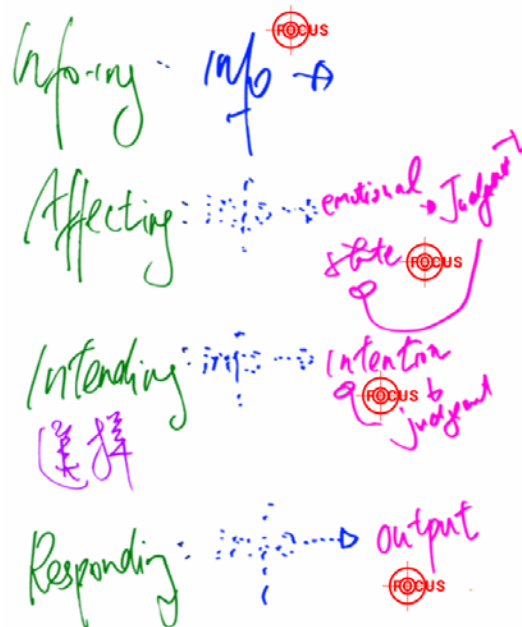 FOCUS
Info-ing : info →
Affecting : info → emotional → Judgment
state FOCUS
Intending : info → Intention
FOCUS judgment
選擇
Responding : info → output
FOCUS